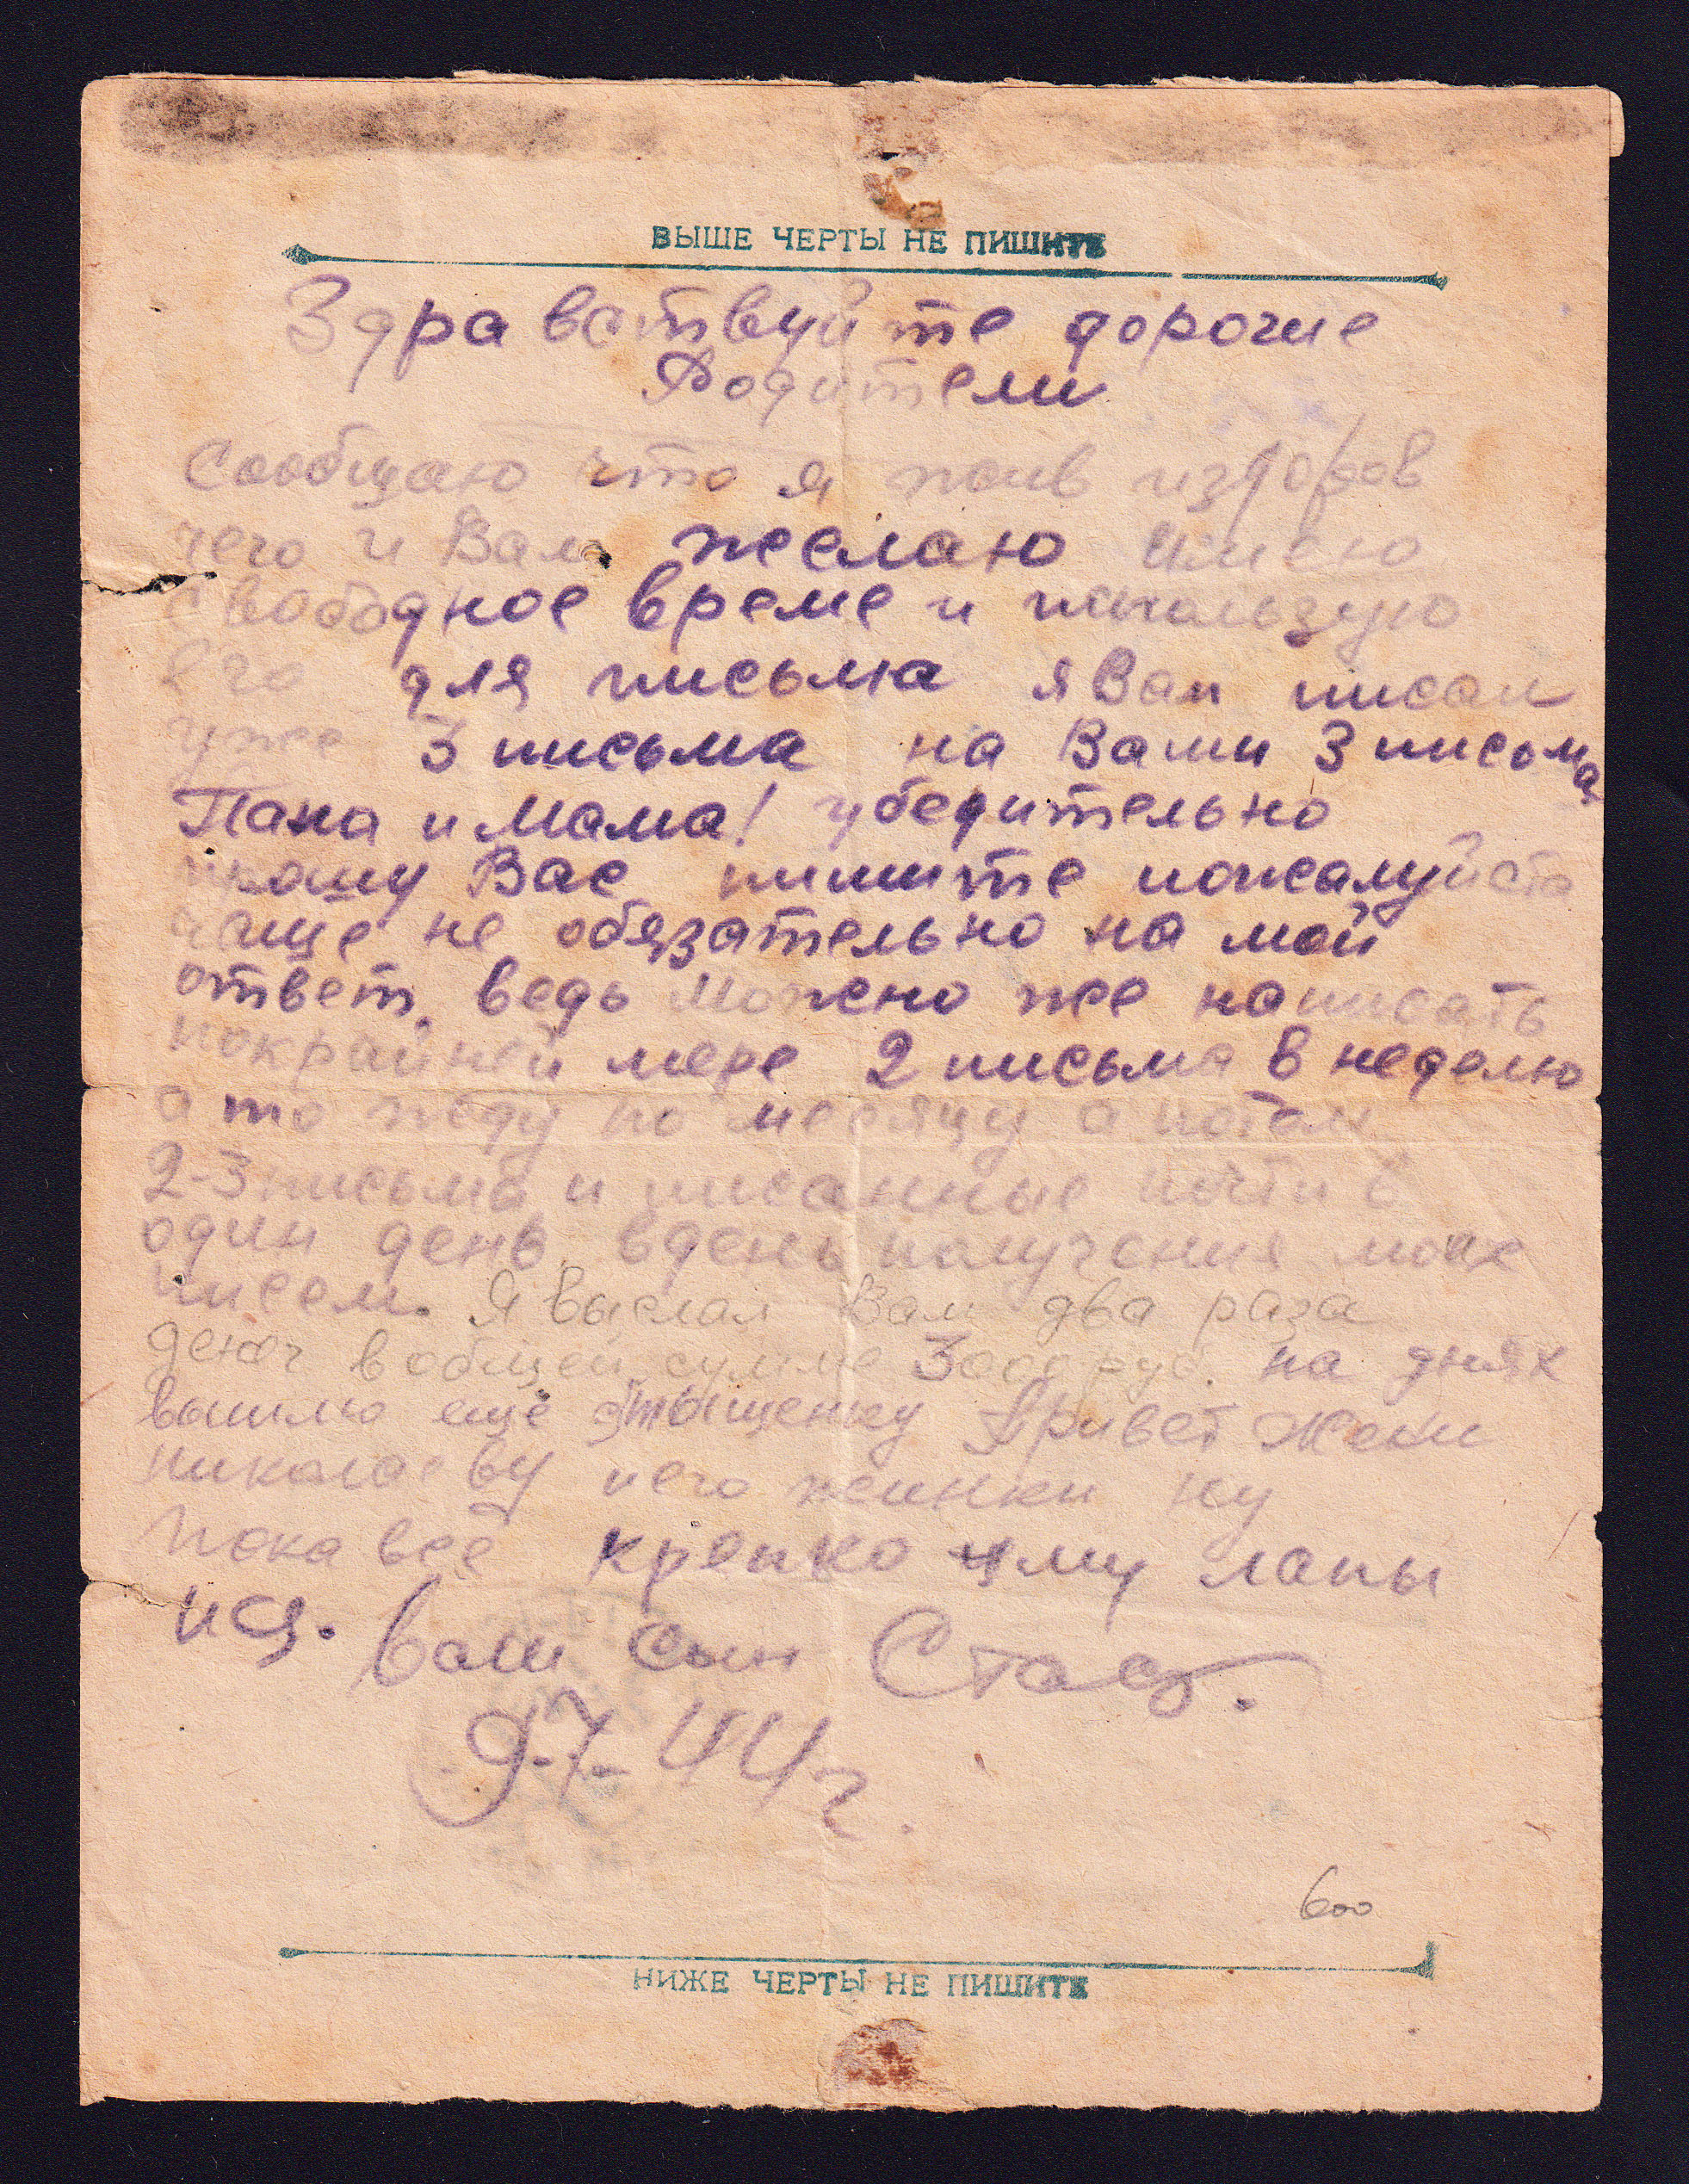 ВЫШЕ ЧЕРТЫ НЕ ПИШИТЕ
Здравствуйте дорогие
Родители
Сообщаю что я жив издоров
чего и Вам желаю имею
свободное време и использую
его для письма я Вам писал
уже 3 письма на Вами 3 письма
Папа и Мама! убедительно
прошу Вас пишите пожалуйста
чаще не обязательно на мой
ответ. ведь можно же написать
покрайней мере 2 письма в неделю
а то жду по месяцу а потом
2-3 письма и писанные почти в
один день вдень получения моих
писем. Я выслал Вам два раза
денег вобщей сумме 3000 руб. на днях
вышлю ещё Привет Жени
Николаеву иего женки ну
пока всё крепко жму лапы
ис. Ваш сын Стас.
9-7-44 г.
600
НИЖЕ ЧЕРТЫ НЕ ПИШИТЕ